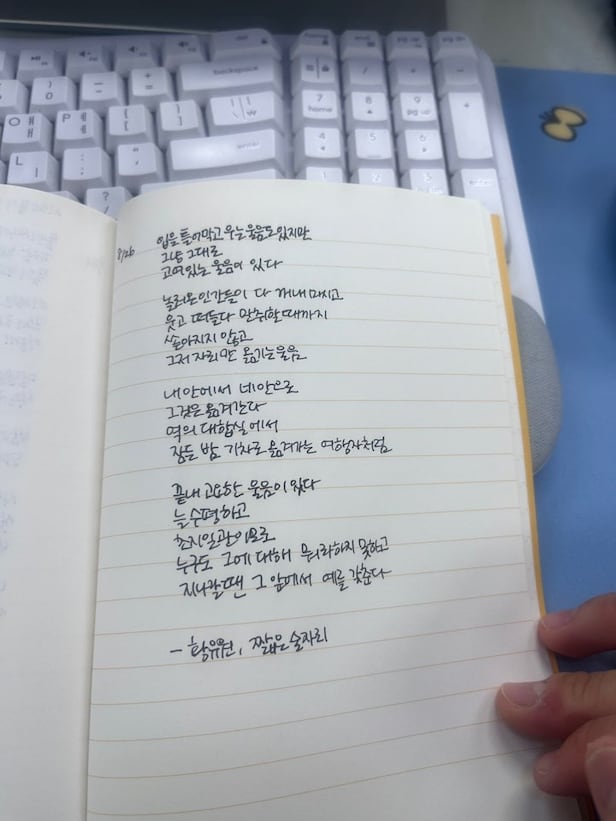 home
end
pg up
pg dn
backspace
7
home
8
9
pg up
4
5
6
enter
8/26
입을 틀어막고 우는 울음도 있지만
그냥 그대로
고여있는 울음이 있다
놀러온 인간들이 다 꺼내 마시고
웃고 떠들다 만취할 때까지
쏟아지지 않고
그저 자리만 옮기는 울음
내 안에서 네 안으로
그것은 옮겨간다
역의 대합실에서
잠든 밤 기차로 옮겨가는 여행자처럼
끝내 고요한 울음이 있다
늘 수평하고
초지일관이므로
누구도 그에 대해 뭐라하지 못하고
지나갈 땐 그 앞에서 예를 갖춘다
- 황유원, 짧은 술자리